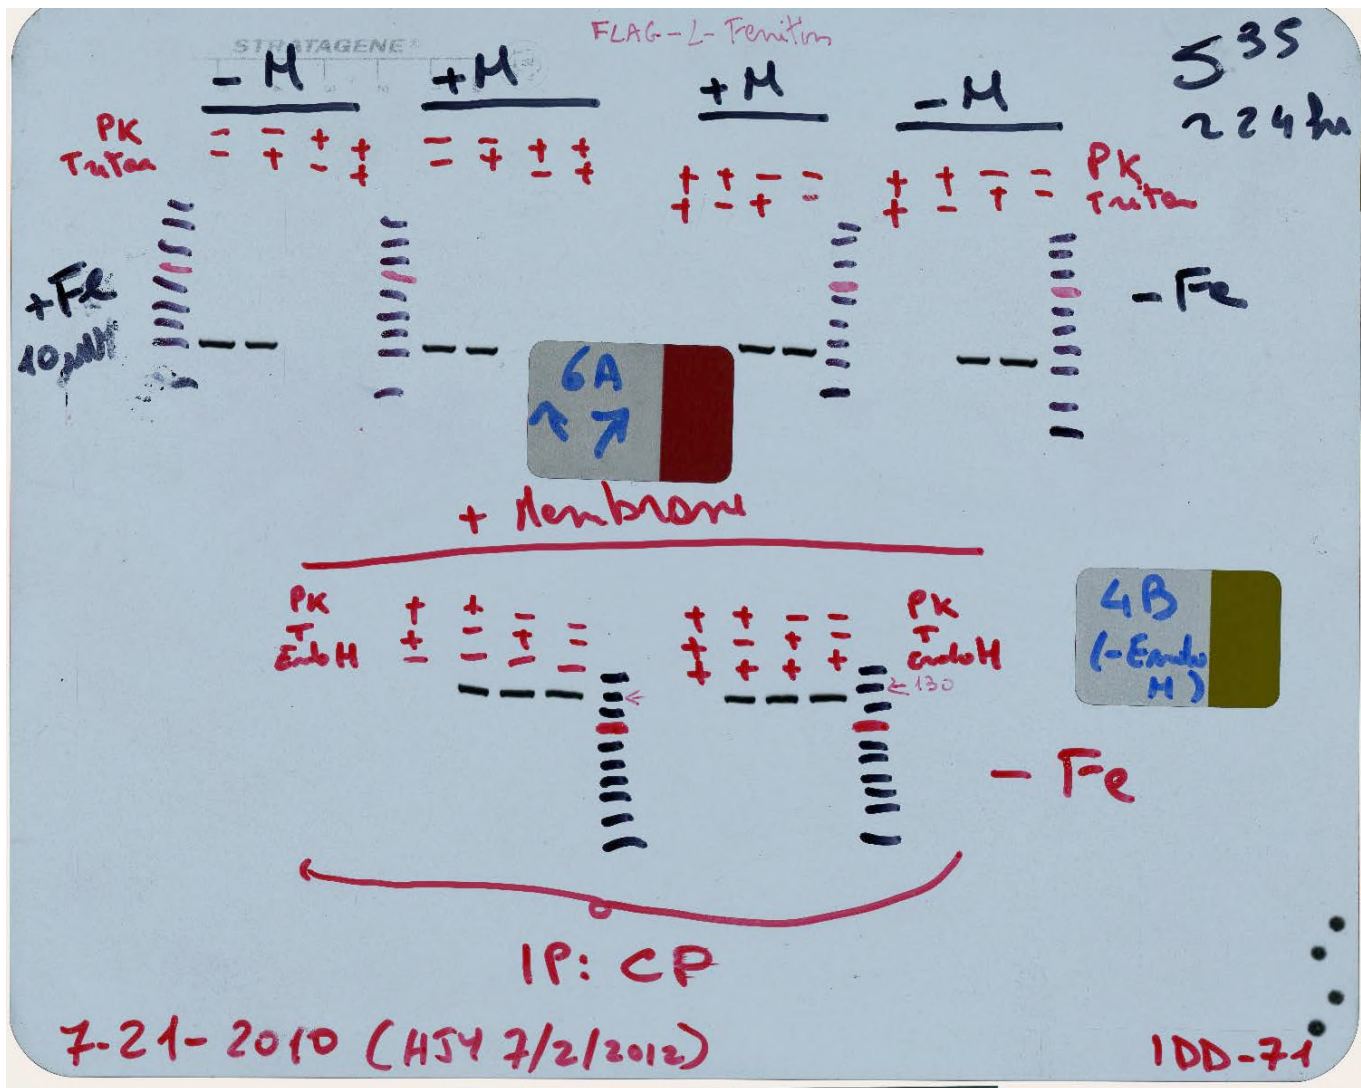 FLAG-L-Ferritin
STRATAGENE®
S35
~24hr
-M +M +M -M
PK - - + +
Triton - + - +
- - + +
- + - +
+ + - - PK
+ - + - Triton
+ + - -
+ - + -
+Fe
10µM
-Fe
6A
+ Membrane
PK + + - -
T + - + -
Endo H - - - -
+ + - - PK
+ - + - T
+ + + + endo H
←
← 130
4B
(-Endo
H)
- Fe
IP: CP
7-21-2010 (HJY 7/2/2012)
IDD-71